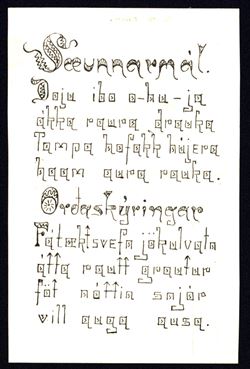 Sæunnarmál.
Daju ibo o-hu-ja
akka raura drauka
Tampa hofakk hujera
haam aura rauka.
Orðaskýringar
Fátækt svefn jökulvatn
átta rautt grautur
föt nóttin snjór
vill auga ausa.